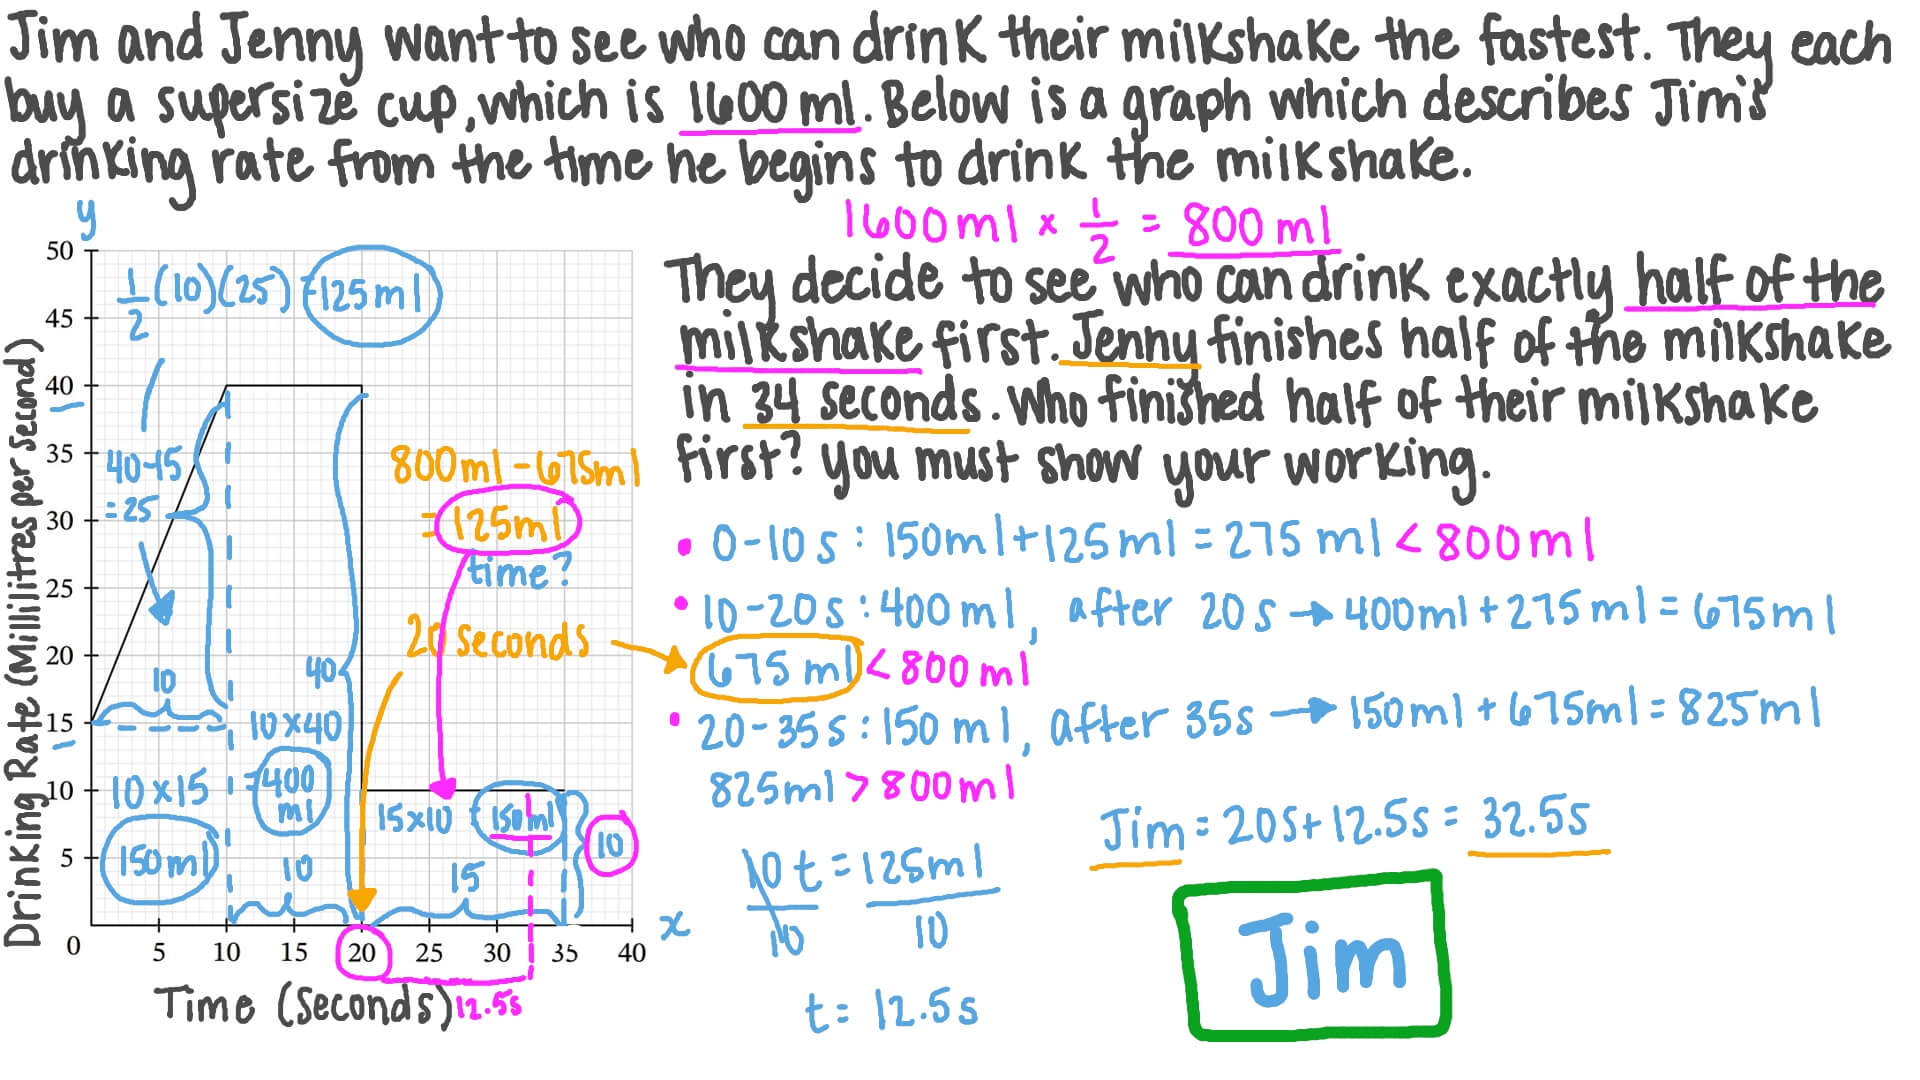 Jim and Jenny want to see who can drink their milkshake the fastest. They each
buy a supersize cup, which is 1600 ml. Below is a graph which describes Jim's
drinking rate from the time he begins to drink the milkshake.
1600ml × 1/2 = 800 ml
They decide to see who can drink exactly half of the
milkshake first. Jenny finishes half of the milkshake
in 34 seconds. Who finished half of their milkshake
first? You must show your working.
y
50
45
40
35
30
25
20
15
10
5
0
Drinking Rate (Millilitres per second)
1/2 (10)(25) = 125 ml
40-15
= 25
10
10 × 15
150 ml
10 × 40
= 400
ml
10
40
800ml - 675ml
= 125ml
time?
20 seconds
15×10 = 150ml
15
10
5
10
15
20
25
30
35
40
x
Time (Seconds)
12.5s
• 0-10 s : 150ml + 125 ml = 275 ml < 800 ml
• 10-20s : 400 ml, after 20 s → 400ml + 275 ml = 675ml
675 ml < 800 ml
• 20-35s : 150 ml, after 35s → 150ml + 675ml = 825ml
825ml > 800ml
10 t = 125ml
10 10
t = 12.5 s
Jim = 20s + 12.5s = 32.5s
Jim